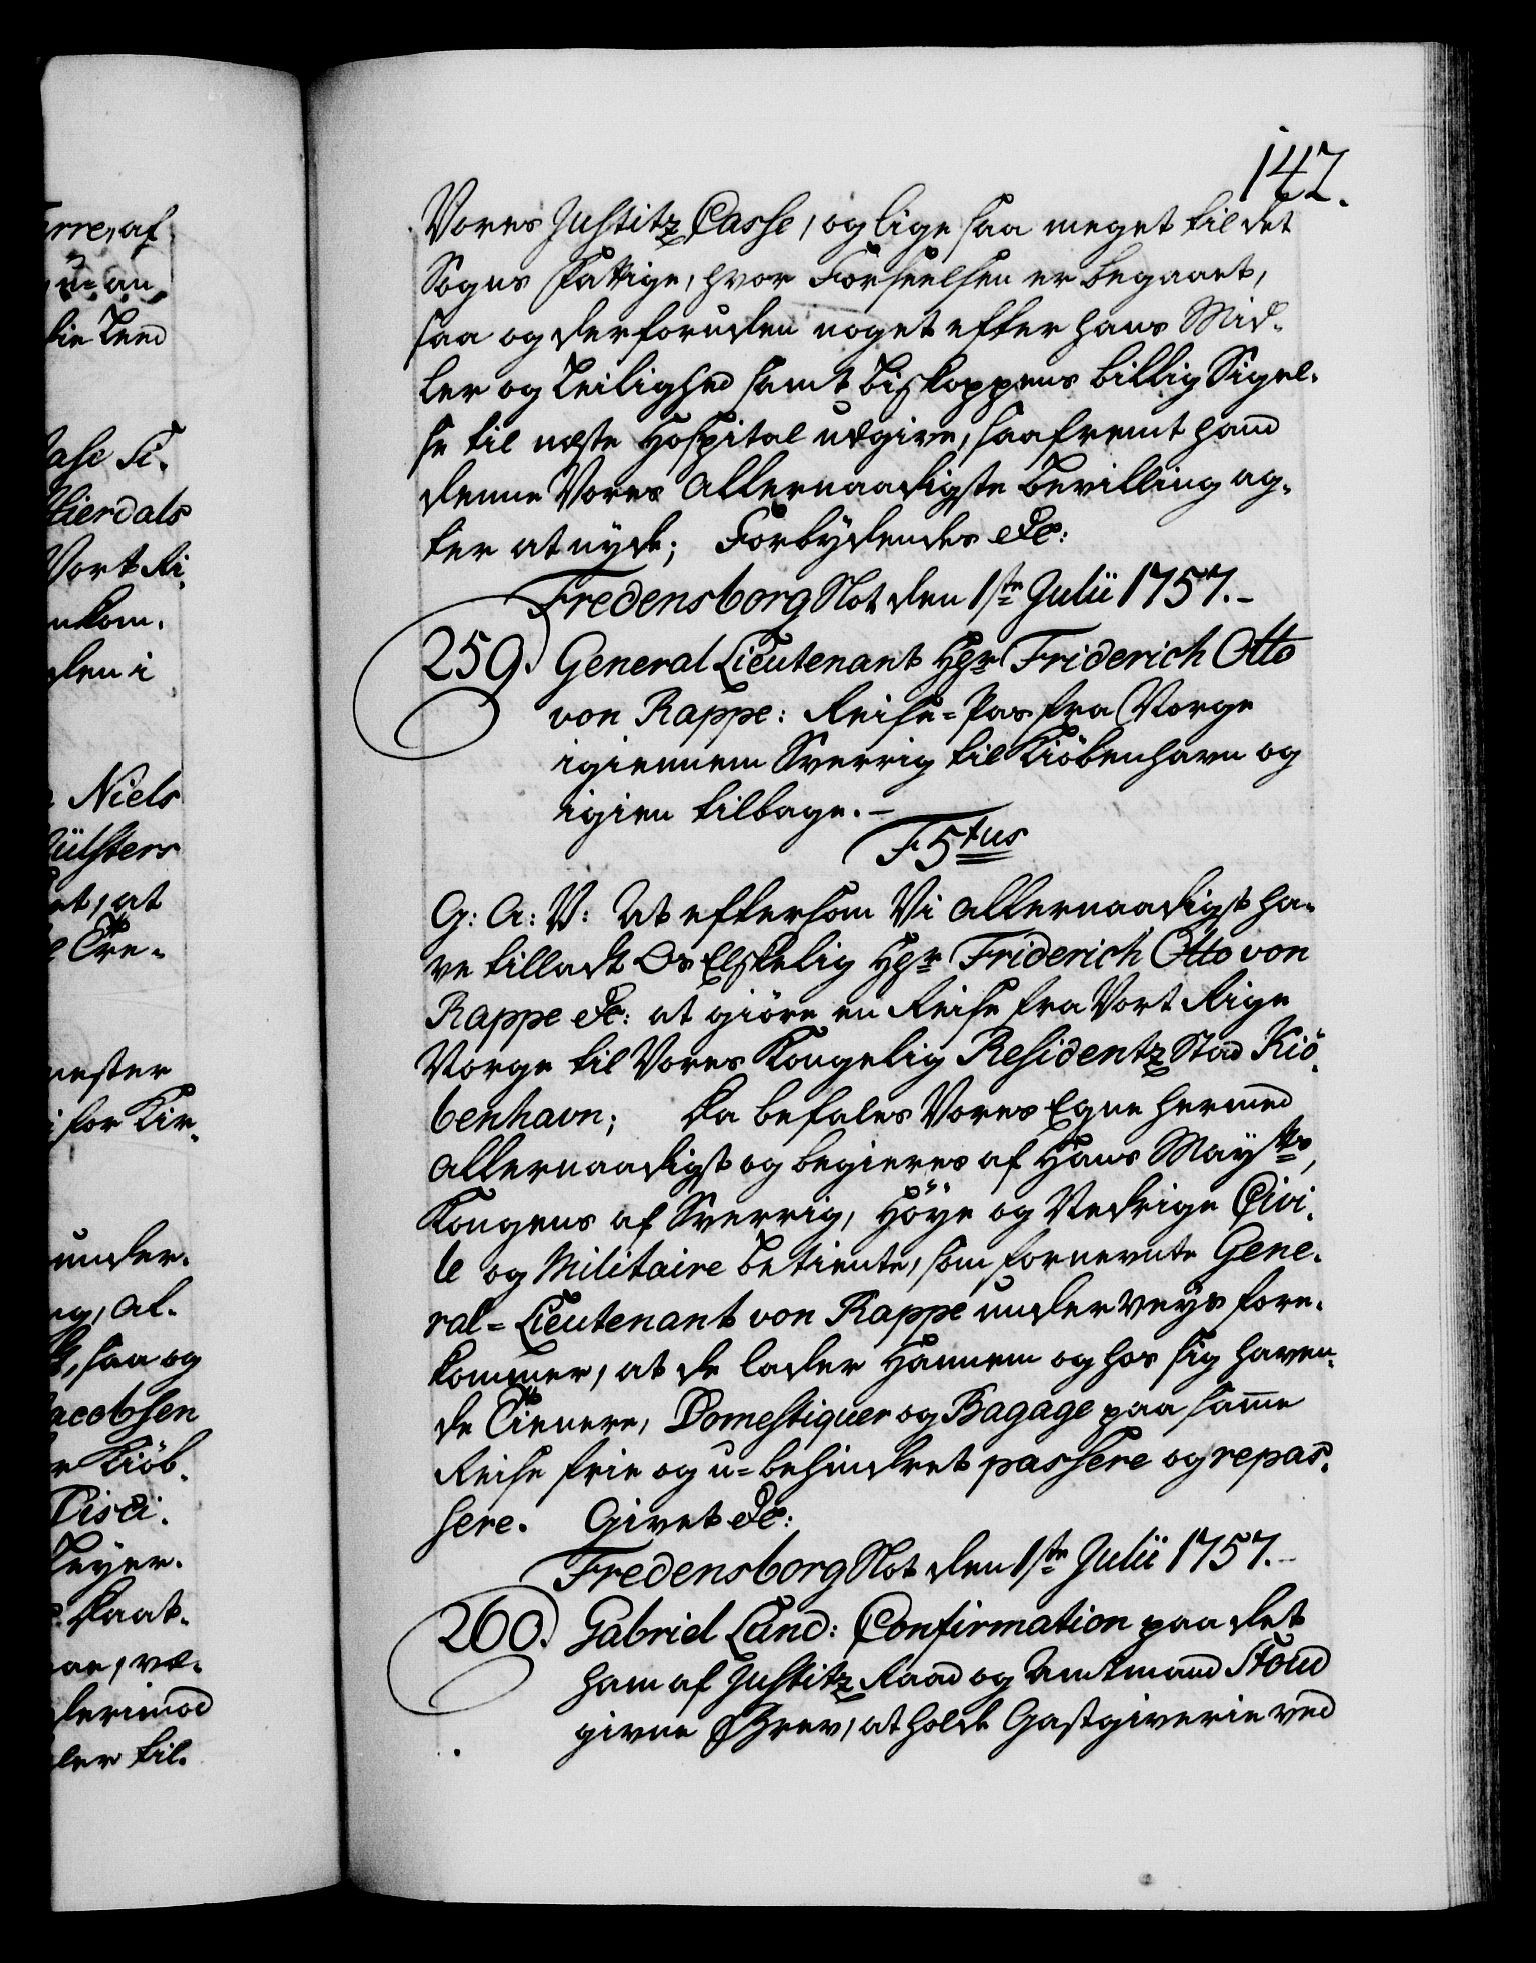 147.
Vores Justitz Casse, og lige saa meget til det
Sogns Fattige, hvor Forseelsen er begaaet,
saa og derforuden noget efter hans Mid-
ler og Leilighed samt Biskoppens billig Sigel-
se til næste Hospital udgive, saafremt hand
denne Vores Allernaadigste Bevilling ag-
ter at nyde; Forbydendes &c:
Fredensborg Slot den 1ste Julii 1757.-
259. General Lieutenant Hgr Friderich Otto
von Rappe: Reise-Pas fra Norge
igiennem Sverrig til Kiöbenhavn og
igien tilbage.-
F5tus
G: A: V: At eftersom Vi allernaadigst ha-
ve tilladt Os Elskelig Hgr Friderich Otto von
Rappe &c: at giöre en Reise fra Vort Rige
Norge til Vores Kongelig Residentz Stad Kiö-
benhavn; Da befales Vores Egne hermed
allernaadigst og begieres af Hans Maysts,
Kongens af Sverrig, Höye og Nedrige Civi-
le og Militaire Betiente, som fornevnte Gene-
ral-Lieutenant von Rappe underveys fore-
kommer, at de lader Hannem og hos sig haven-
de Tienere, Domestiquer og Bagage paa samme
Reise frie og u-behindret passere og repas-
sere. Givet &c:
Fredensborg Slot den 1ste Julii 1757.-
260. Gabriel Lund: Confirmation paa det
ham af Justitz Raad og Amtmand Stoud
givne Brev, at holde Gastgiverie ved
irre, af
u-an
Niels
et, at
Tre-
mester
for Kir-
under-
saa og
acobsen
Kiöb-